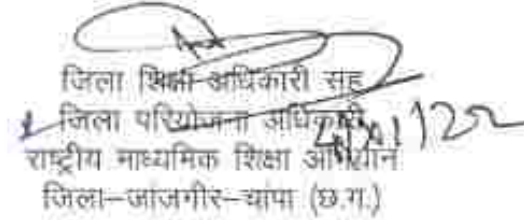 जिला शिक्षा अधिकारी सह
जिला परियोजना अधिकारी
राष्ट्रीय माध्यमिक शिक्षा अभियान
जिला–जांजगीर–चांपा (छ.ग.)